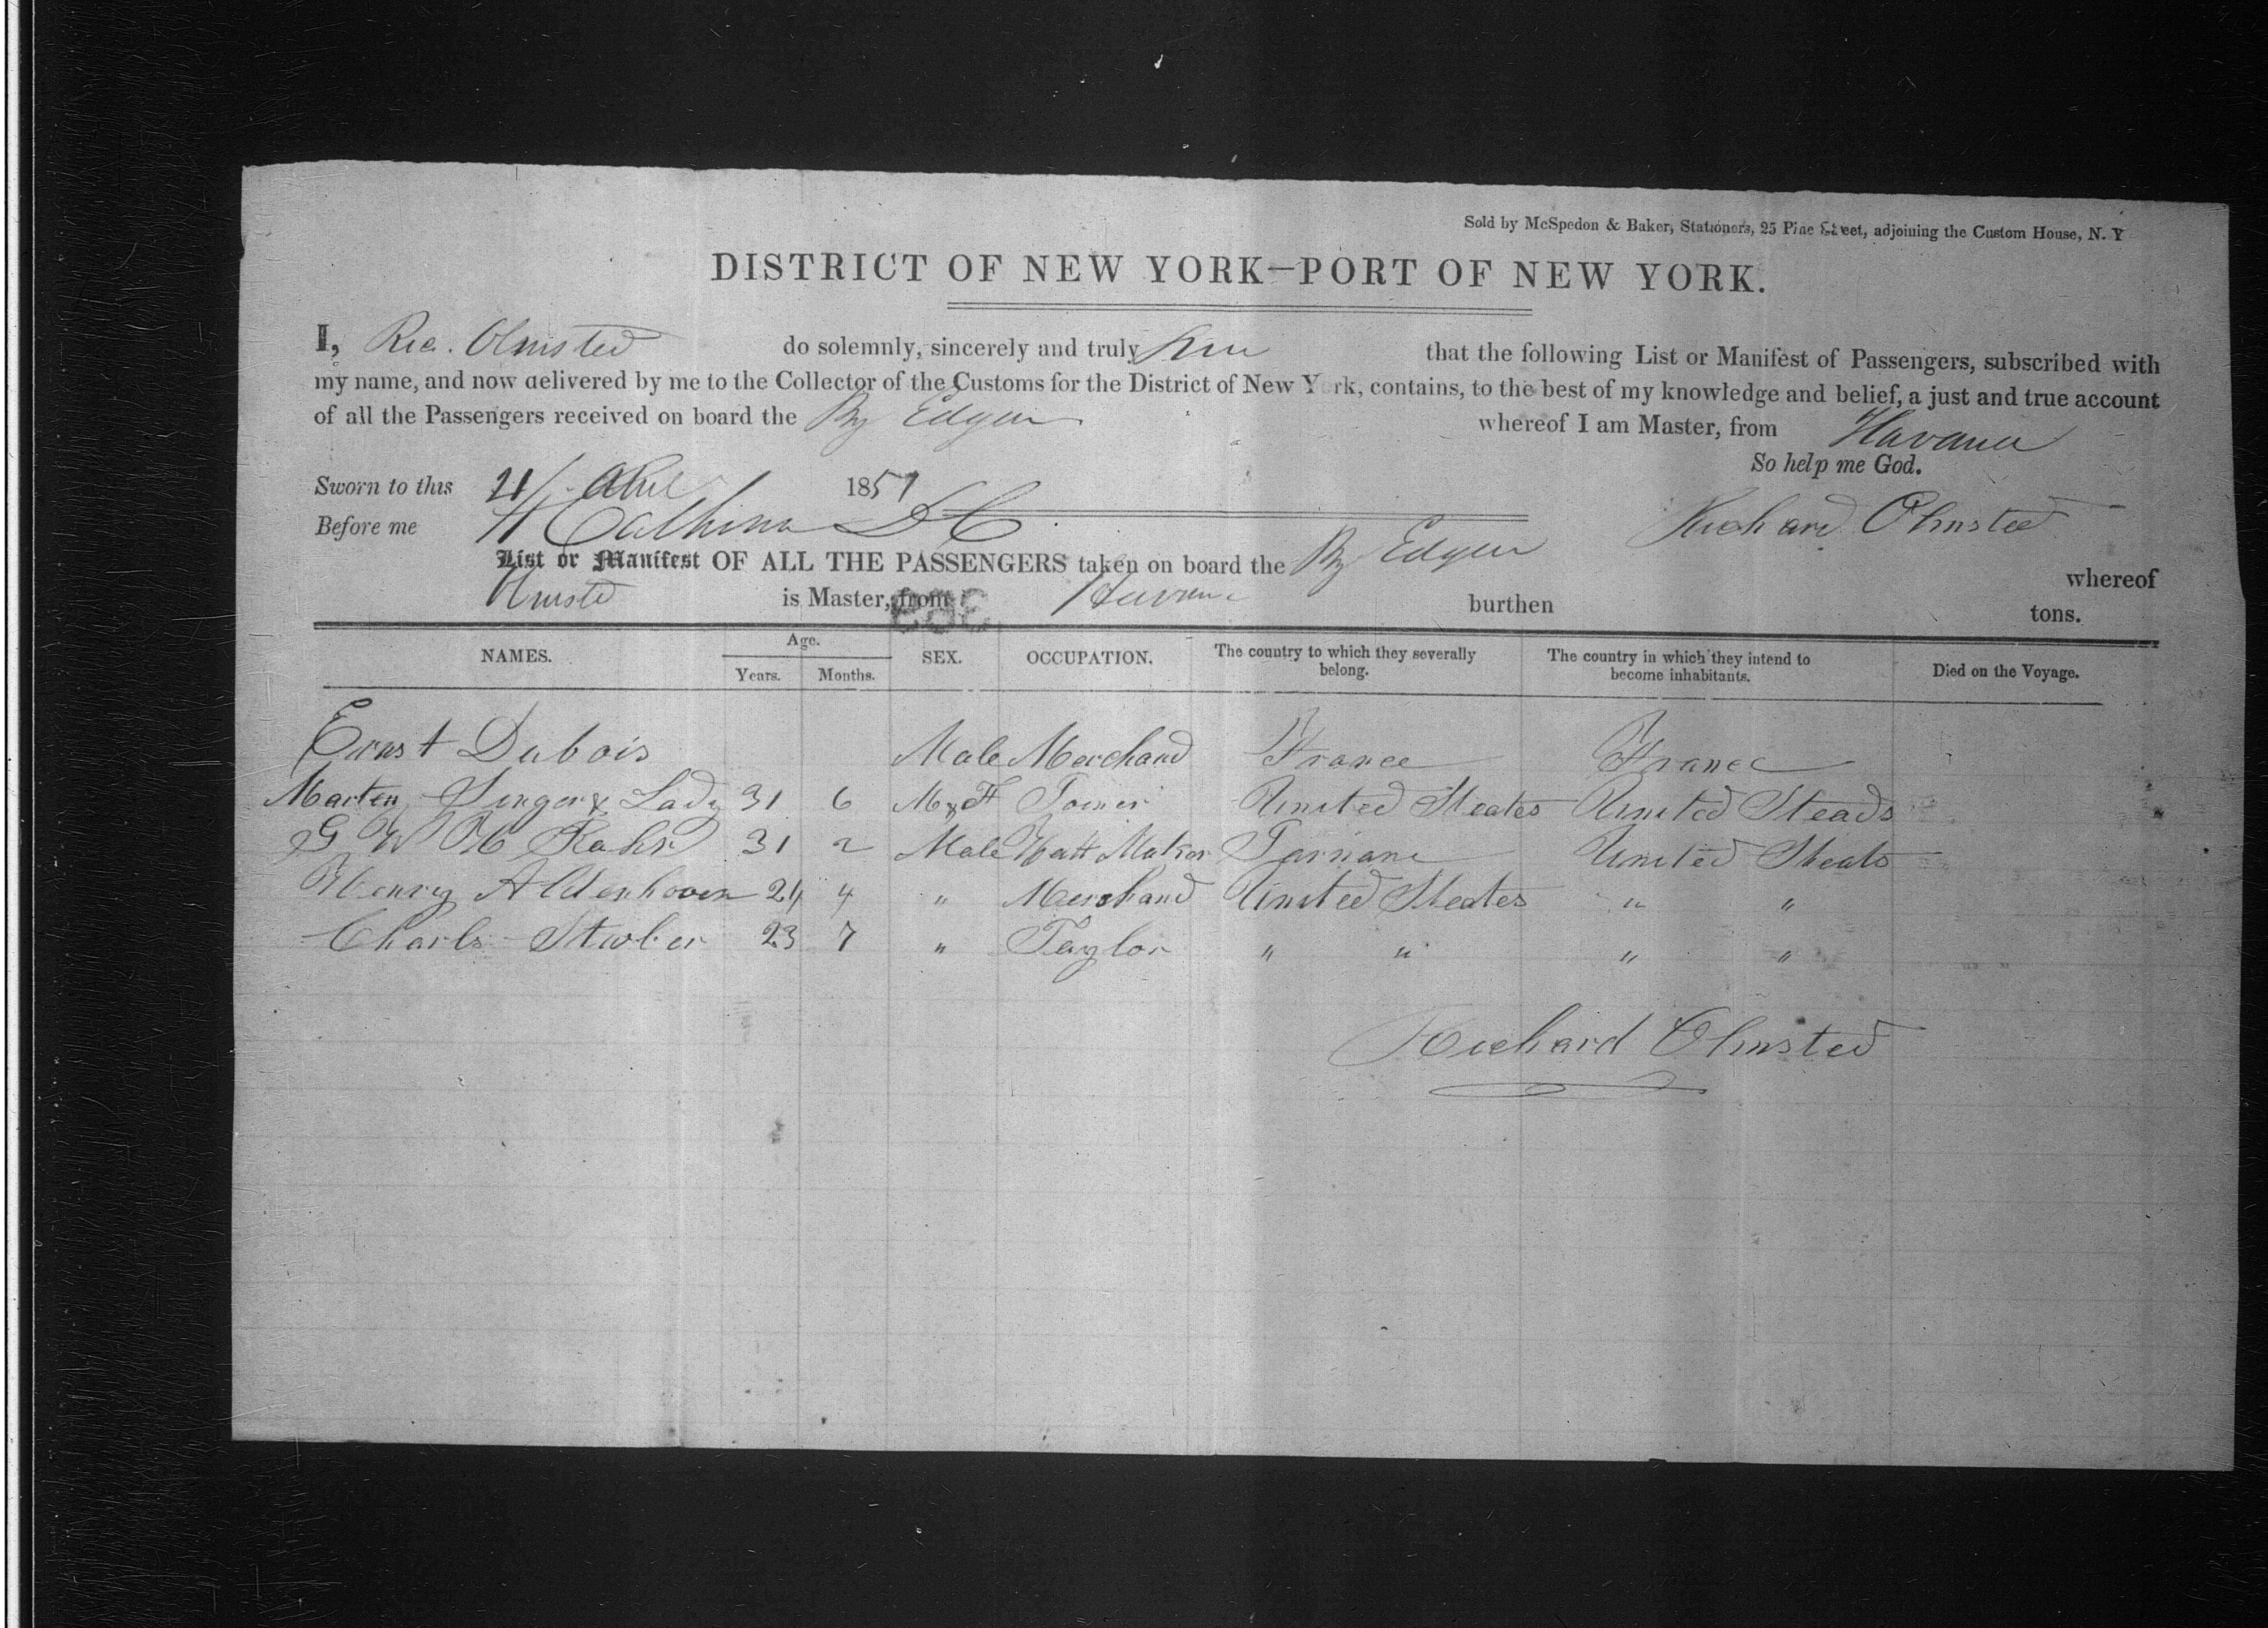 Sold by McSpedon & Baker, Stationers, 25 Pine Street, adjoining the Custom House, N. Y
DISTRICT OF NEW YORK—PORT OF NEW YORK.
I, Ric. Olmsted do solemnly, sincerely and truly that the following List or Manifest of Passengers, subscribed with
my name, and now delivered by me to the Collector of the Customs for the District of New York, contains, to the best of my knowledge and belief, a just and true account
of all the Passengers received on board the Edgar whereof I am Master, from Havana
So help me God.
Sworn to this 21 1851
Before me Richard Olmsted
List or Manifest OF ALL THE PASSENGERS taken on board the Edgar whereof
is Master, from Havana burthen tons.
NAMES. Age. Years. Months. SEX. OCCUPATION. The country to which they severally belong. The country in which they intend to become inhabitants. Died on the Voyage.
Ernst Dubois Male Merchand France France
Marten Singer & Lady 31 6 M & F United Steates United Steads
G W H Rahr 31 2 Male Hatt Maker United Steats
Henry Aldenhoven 24 4 " Merchand United Steates " "
Charls Stuber 23 7 " Taylor " " " "
Richard Olmsted